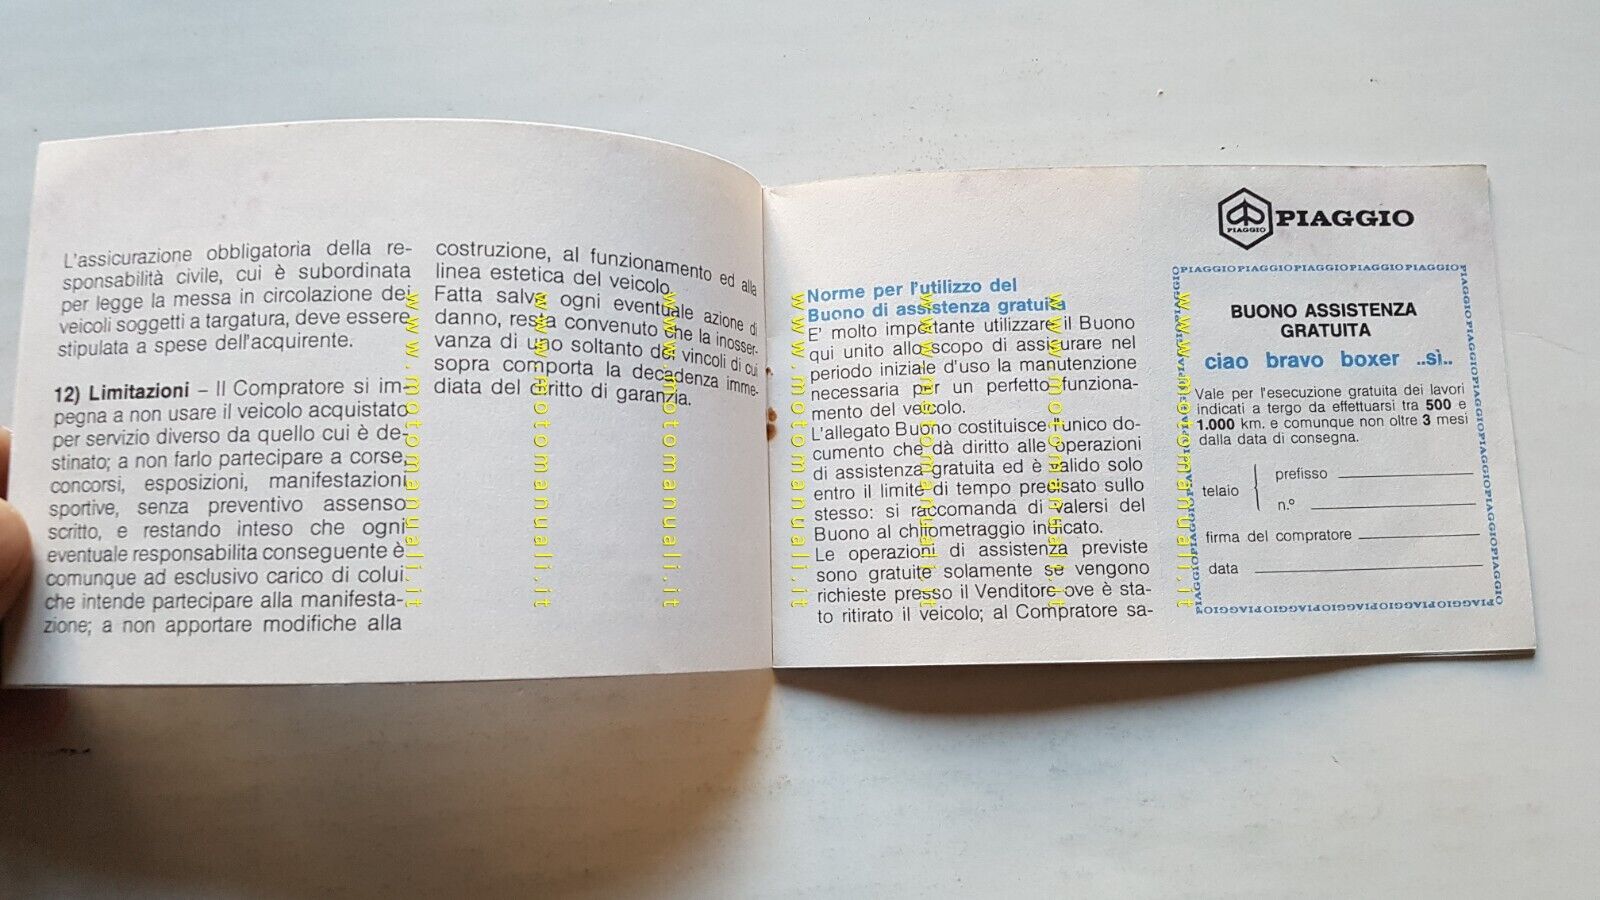 L'assicurazione obbligatoria della re-
sponsabilità civile, cui è subordinata
per legge la messa in circolazione dei
veicoli soggetti a targatura, deve essere
stipulata a spese dell'acquirente.
12) Limitazioni – Il Compratore si im-
pegna a non usare il veicolo acquistato
per servizio diverso da quello cui è de-
stinato; a non farlo partecipare a corse,
concorsi, esposizioni, manifestazioni
sportive, senza preventivo assenso
scritto, e restando inteso che ogni
eventuale responsabilita conseguente è
comunque ad esclusivo carico di colui
che intende partecipare alla manifesta-
zione; a non apportare modifiche alla
costruzione, al funzionamento ed alla
linea estetica del veicolo.
Fatta salva ogni eventuale azione di
danno, resta convenuto che la inosser-
vanza di uno soltanto dei vincoli di cui
sopra comporta la decadenza imme-
diata del diritto di garanzia.
Norme per l'utilizzo del
Buono di assistenza gratuita
E' molto importante utilizzare il Buono
qui unito allo scopo di assicurare nel
periodo iniziale d'uso la manutenzione
necessaria per un perfetto funziona-
mento del veicolo.
L'allegato Buono costituisce l'unico do-
cumento che dà diritto alle operazioni
di assistenza gratuita ed è valido solo
entro il limite di tempo precisato sullo
stesso: si raccomanda di valersi del
Buono al chilometraggio indicato.
Le operazioni di assistenza previste
sono gratuite solamente se vengono
richieste presso il Venditore ove è sta-
to ritirato il veicolo; al Compratore sa-
PIAGGIO PIAGGIO
PIAGGIOPIAGGIOPIAGGIOPIAGGIOPIAGGIO
BUONO ASSISTENZA
GRATUITA
ciao bravo boxer ..sì..
Vale per l'esecuzione gratuita dei lavori
indicati a tergo da effettuarsi tra 500 e
1.000 km. e comunque non oltre 3 mesi
dalla data di consegna.
telaio
prefisso
n.º
firma del compratore
data
PIAGGIOPIAGGIOPIAGGIOPIAGGIOPIAGGIO
PIAGGIOPIAGGIOPIAGGIOPIAGGIOPIAGGIO
PIAGGIOPIAGGIOPIAGGIOPIAGGIOPIAGGIO
www.motomanuali.it
www.motomanuali.it
www.motomanuali.it
www.motomanuali.it
www.motomanuali.it
www.motomanuali.it
www.motomanuali.it